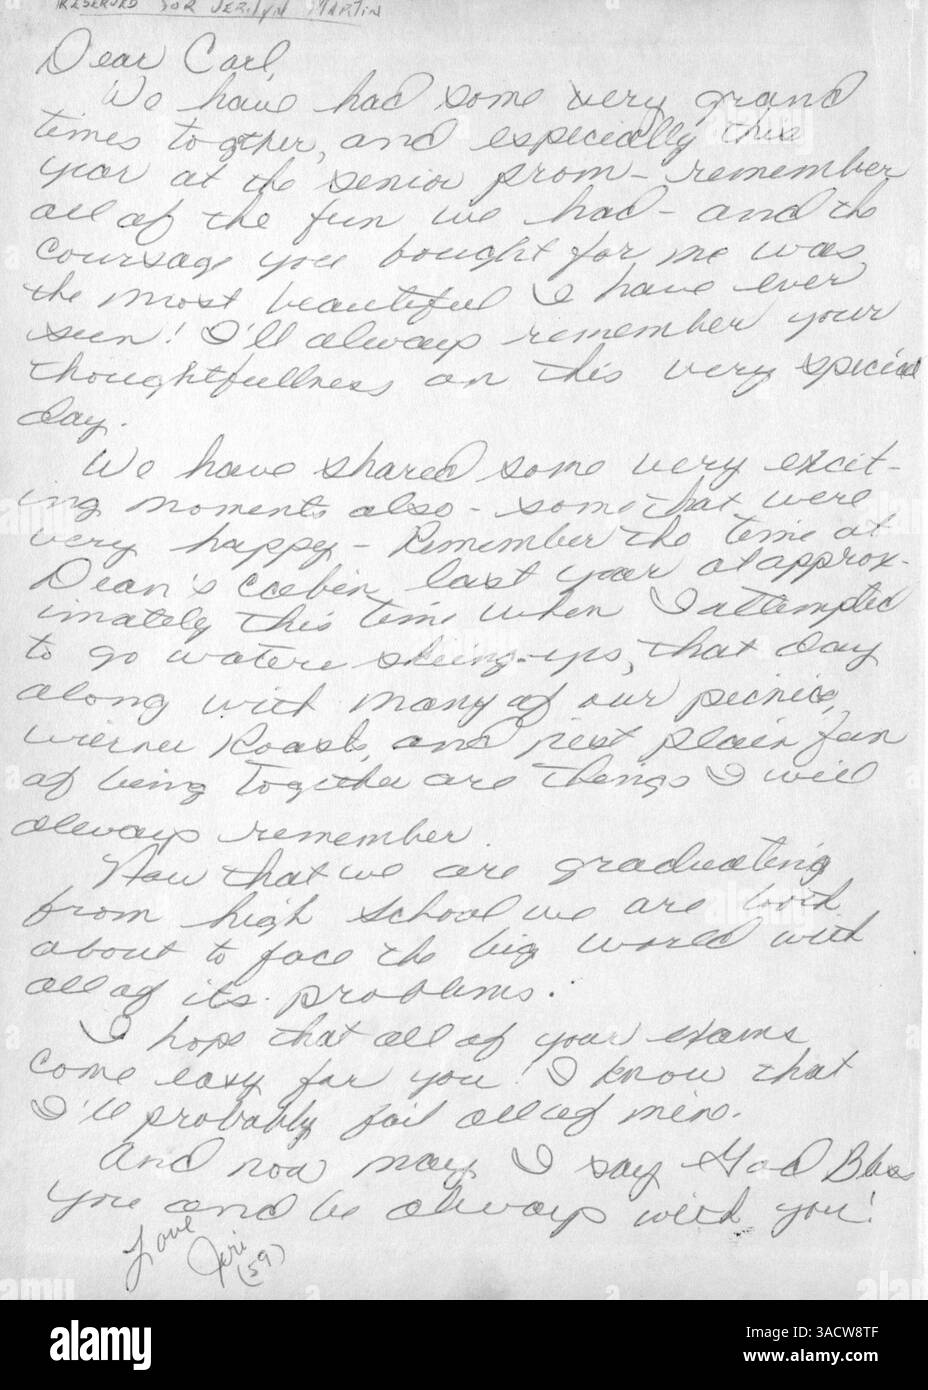 RESERVED FOR JERILYN MARTIN
Dear Carl,
We have had some very grand
times together, and especially this
year at the senior prom - remember
all of the fun we had - and the
coursage you bought for me was
the most beautiful I have ever
seen! I'll always remember your
thoughtfullness on this very special
day.
We have shared some very excit-
ing moments also - some that were
very happy - Remember the time at
Dean's cabin last year at approx-
imately this time when I attempted
to go watere skiing - yes, that day
along with many of our picnics,
wiener Roasts, and just plain fun
of being together are things I will
always remember.
Now that we are graduating
from high school we are both
about to face the big world with
all of its problems.
I hope that all of your exams
come easy for you! I know that
I'll probably fail all of mine.
And now may I say God Bless
you and be always with you!
Love
Jeri
(59)
alamy
Image ID: 3ACW8TF
www.alamy.com